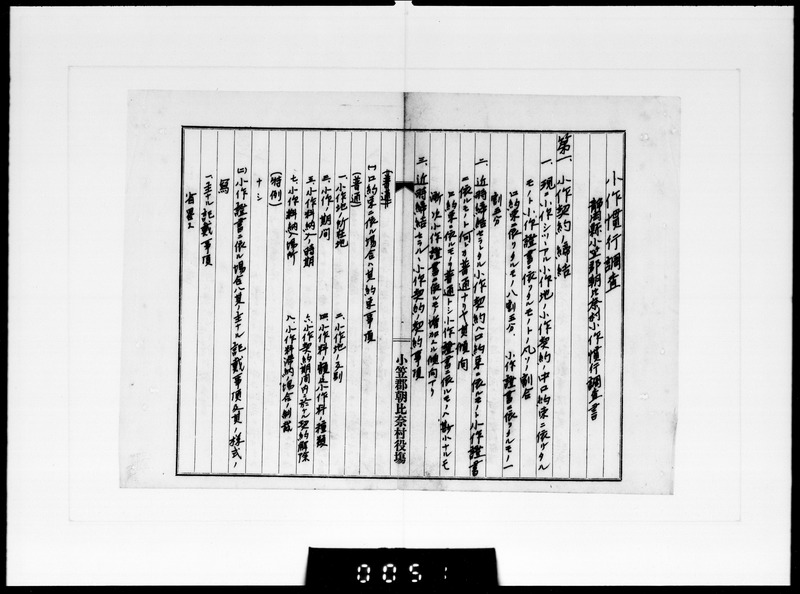 小作慣行調査
靜岡縣小笠郡朝比奈村小作慣行調査書
第一 小作契約ノ締結
一、現ニ小作シツヽアル小作地ノ小作契約ノ中口約束ニ依リタル
モノト小作證書ニ依リタルモノトノ凡ソノ割合
口約束ニ依リタルモノ八割五分、小作證書ニ依リタルモノ一
割五分
二、近時締結セラタル小作契約ハ口約束ニ依ルモノト小作證書
ニ依ルモノト何レガ普通ナリヤ其傾向
口約束ニ依ルモノ普通トシ小作證書ニ依ルモノハ尠小ナルモ
漸次小作證書ニ依ルモノ増加スル傾向アリ
三、近時締結セラル小作契約ノ契約事項
小笠郡朝比奈村役場
(普通)
(一)口約束ニ依ル場合ハ其約束事項
(普通)
一、小作地ノ所在地 二、小作地ノ反別
三、小作期間 四、小作料ノ額並小作料ノ種類
五、小作料納入ノ時期 六、小作契約期間内ニ於ケル契約解除
七、小作料納入場所 八、小作料滯納ノ場合ノ制裁
(特例)
ナシ
(二)小作證書ニ依ル場合ハ其ノ主ナル記載事項及其ノ様式ノ
寫
一、主ナル記載事項
省畧ス
0051